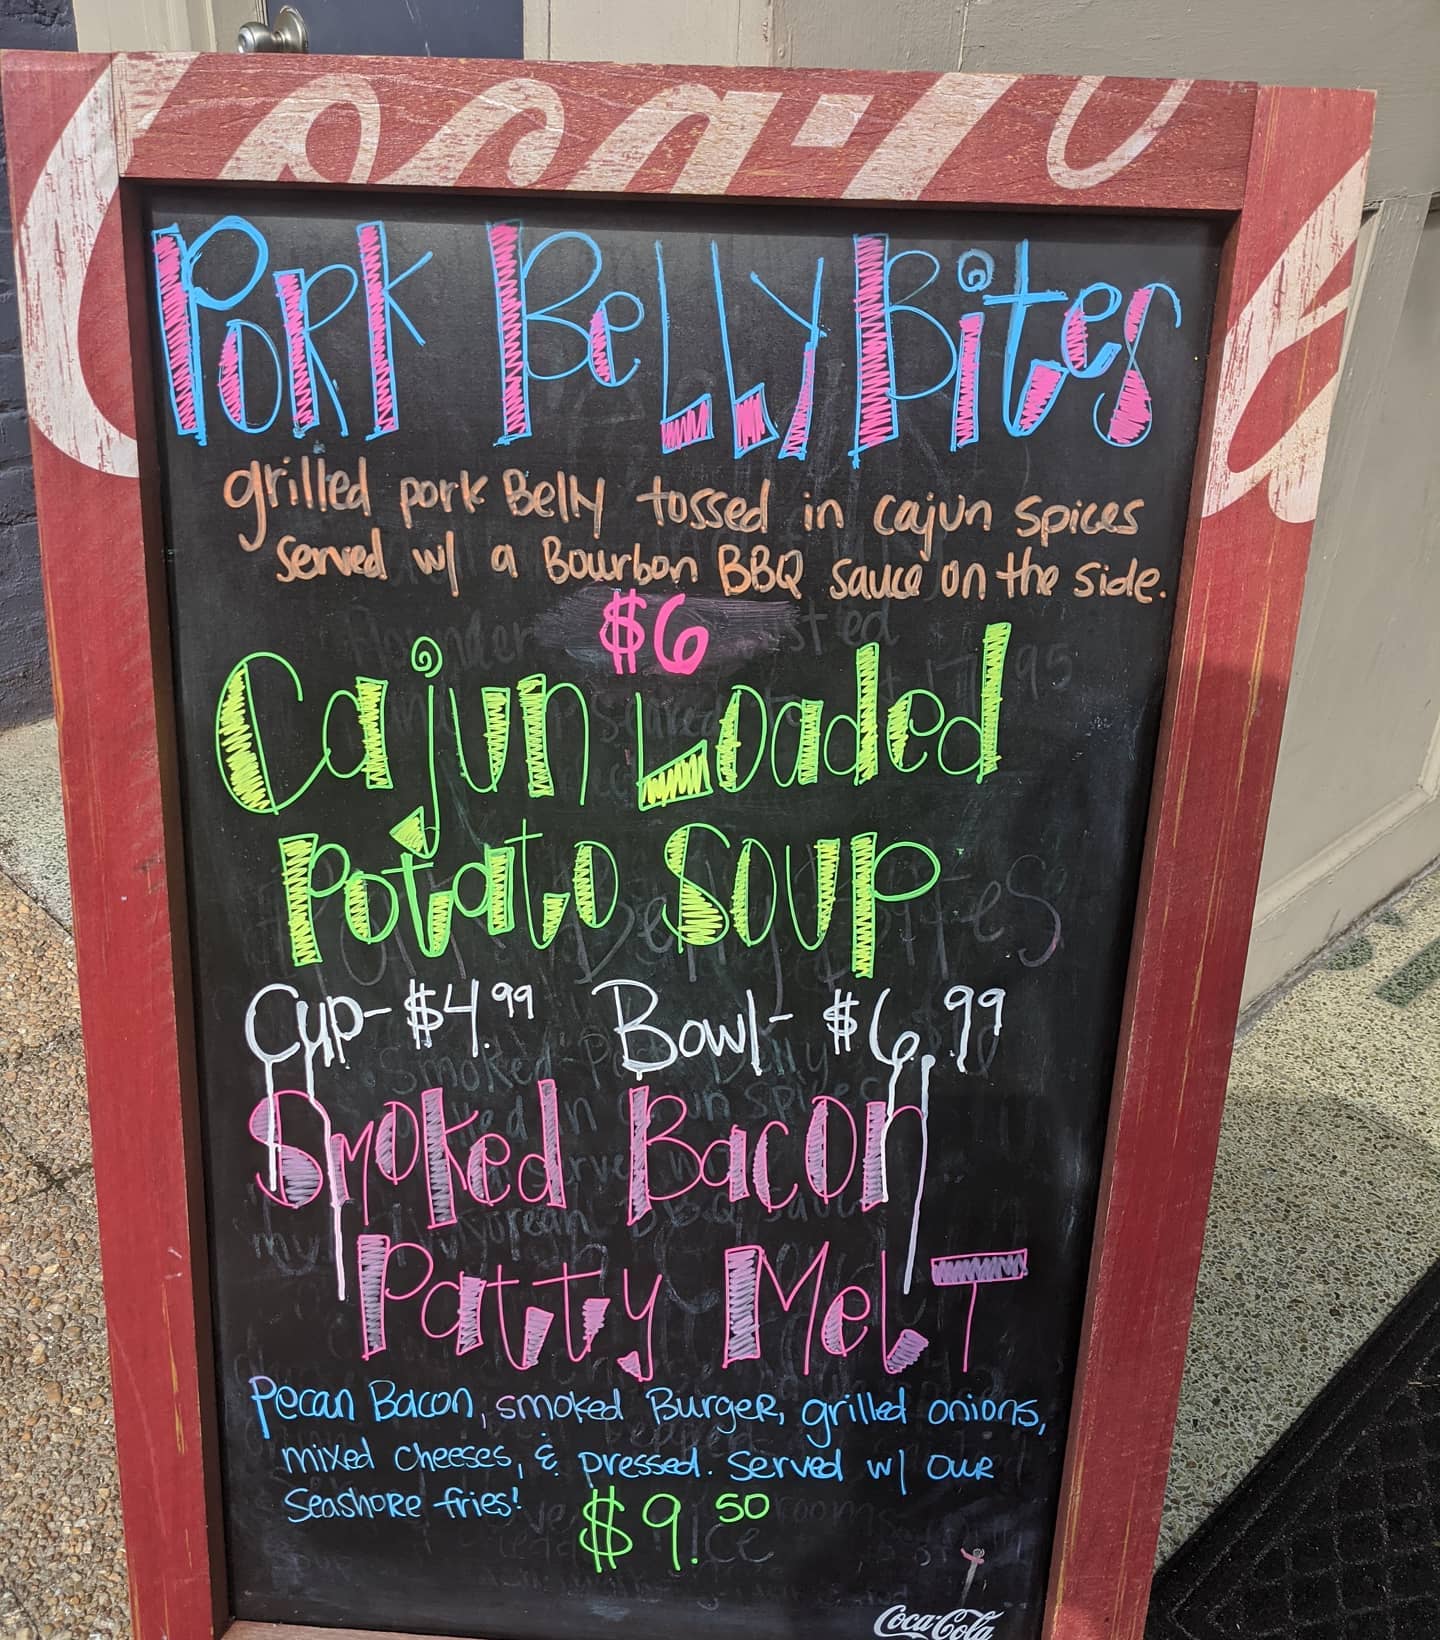 Coca-Co
Pork Belly Bites
grilled pork Belly tossed in cajun spices
served w/ a Bourbon BBQ sauce on the side.
$6
Cajun Loaded
Potato Soup
Cup- $4.99 Bowl- $6.99
Smoked Bacon
Patty Melt
Pecan Bacon, smoked Burger, grilled onions,
mixed cheeses, & pressed. Served w/ our
Seashore fries!
$9.50
Coca-Cola